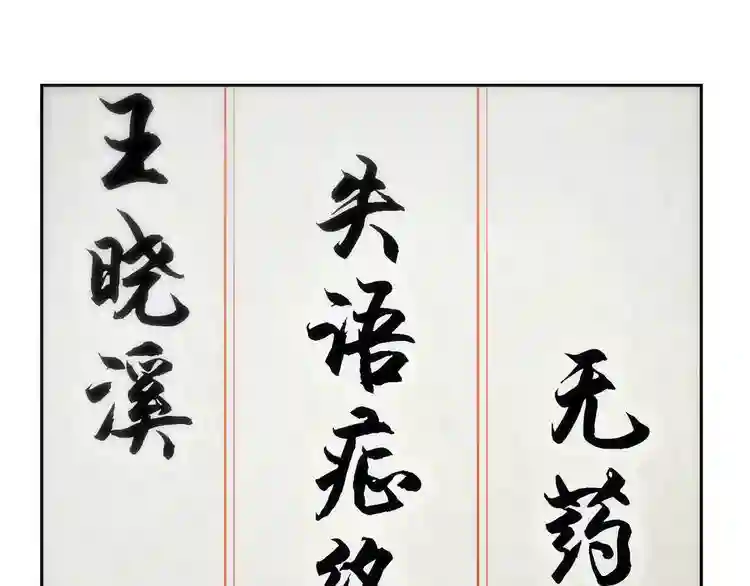 无药
失语症
王晓溪